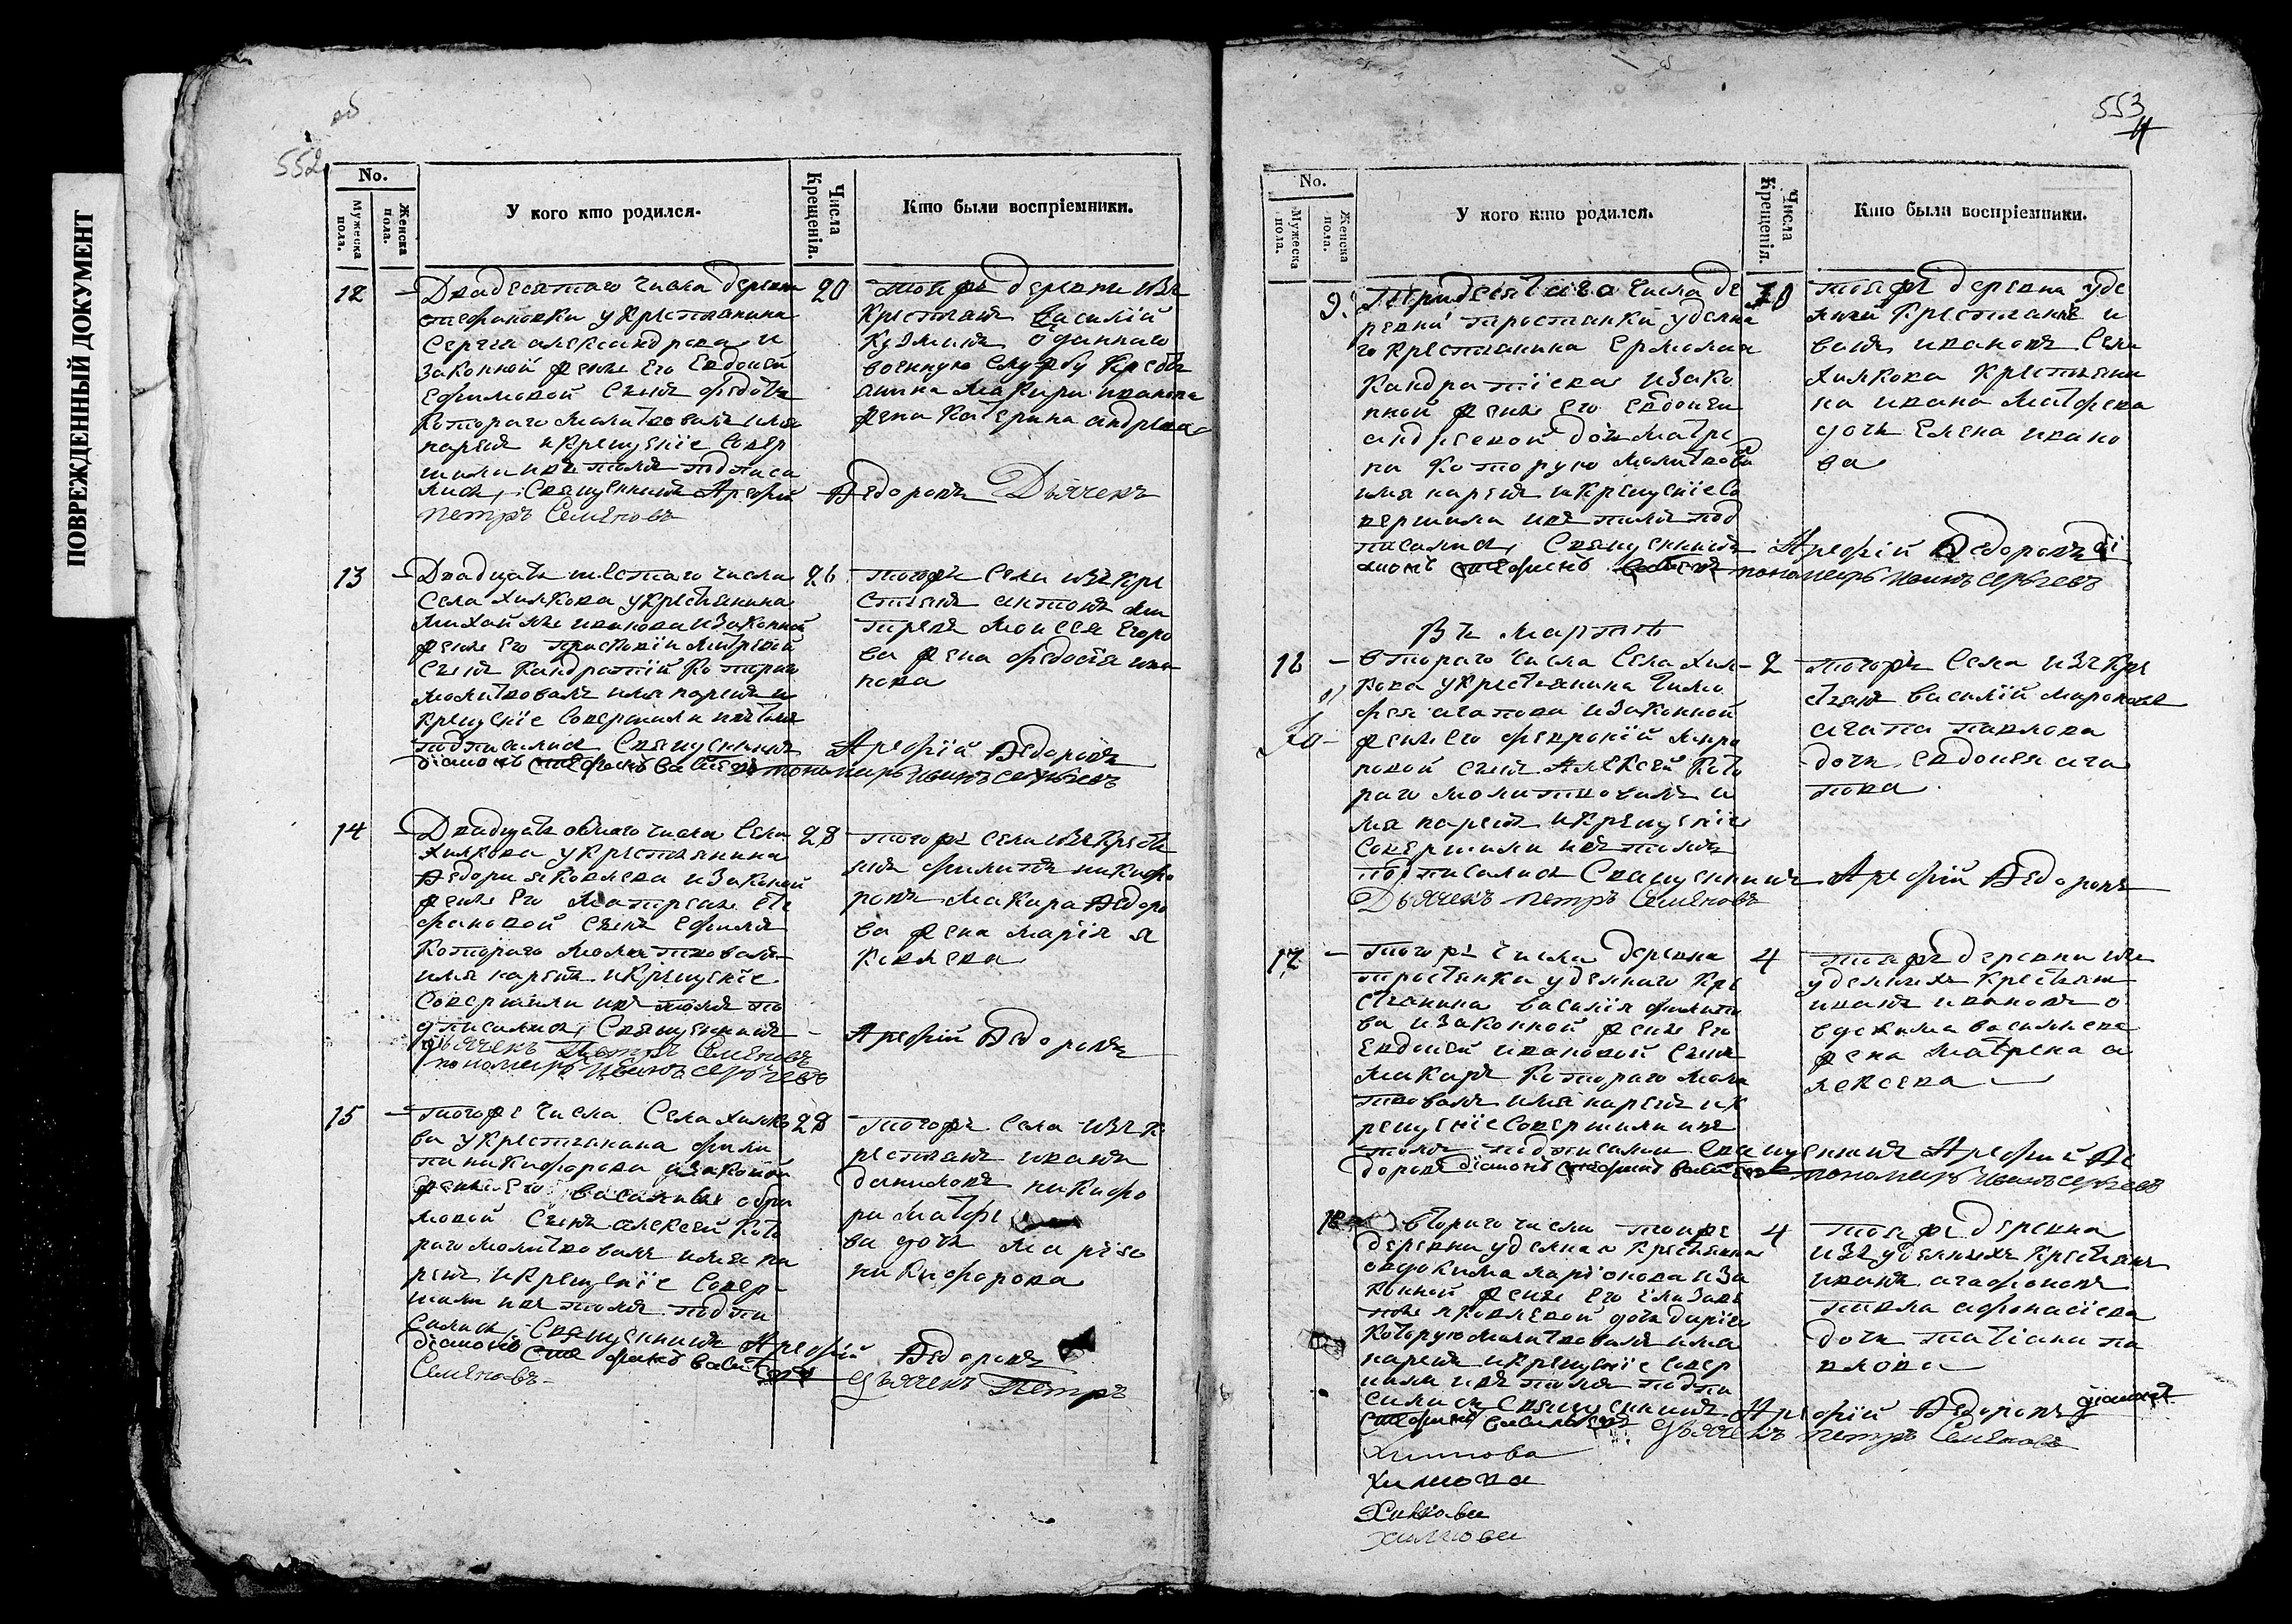 ПОВРЕЖДЕННЫЙ ДОКУМЕНТ
об
552
No.
Мужеска пола.
Женска пола.
У кого кто родился.
Числа Крещенія.
Кто были воспріемники.
12 – Двадесятаго числа деревни
стефановки у крестьянина
Сергея александрова и
законной жены его Евдокеи
Ефимовой сынъ федотъ
котораго молитвовалъ имя
нарекъ и крещеніе совер
шили въ томъ подписа
лися, Священникъ Арефій Ѳедоровъ Дьячекъ
петръ Семеновъ
20 тойже деревни изъ
крестьянъ василій
Кузминъ
военную службу
макира иванова
жена катерина андреева
13 – Двадцать шестаго числа
Села хилкова у крестьянина
михайлы иванова и законной
жены его прасковіи
сынъ кандратій котораго
молитвовалъ имя нарекъ и
крещеніе совершили въ томъ
подписалися Священникъ Арефій Ѳедоровъ
діаконъ стефанъ васильевъ пономарь иванъ сергеевъ
26 тогожъ села изъ кре
стьянъ антонъ дми
тревъ моисея егоро
ва жена федосья ива
нова
14 – Двадцать осмаго числа Села
хилкова у крестьянина
Ѳедора яковлева и законой
жены его матрены сте
фановой сынъ ефимъ
котораго молитвовалъ
имя нарекъ и крещеніе
совершили въ томъ по
дписалися, Священникъ Арефій Ѳедоровъ
дьячекъ Петръ Семеновъ
пономарь иванъ сергеевъ
28 тогожъ села изъ крестья
нъ филипъ никифо
ровъ макара Ѳедоро
ва жена марія я
ковлева
15 – тогоже числа Села хилко
ва у крестьянина фили
па никифорова и законой
жены его василисы абра
мовой Сынъ алексей кото
раго молитвовалъ имя на
рекъ и крещеніе совер
шили въ томъ подпи
сались, Священникъ Арефій Ѳедоровъ
діаконъ Стефанъ васильевъ дьячекъ Петръ
Семеновъ
28 тогожъ села изъ к
рестьянъ иванъ
даниловъ никифо
ра матфе
ва дочь марія
никифорова
553
4
No.
Мужеска пола.
Женска пола.
У кого кто родился.
Числа Крещенія.
Кто были воспріемники.
9. Тридесятаго числа де
ревни тростянки уделна
го крестьянина Ермолая
Кандратіева и зако
нной жены его евдокеи
андреевой дочь матре
на которую молитвовалъ
имя нарекъ и крещеніе со
вершили въ томъ под
писались, Священникъ Арефій Ѳедоровъ ді
аконъ стефанъ васильевъ пономарь иванъ сергеевъ
30 тоежъ деревни уде
лный крестьянинъ и
ванъ ивановъ села
хилкова крестьяни
на ивана матфева
дочь елена ивано
ва
Въ мартѣ
16 – втораго числа Села хил
кова у крестьянина тимо
фея агапова и законной
жены его февроніи миро
новой сынъ Алексей кото
раго молитвовалъ и
мя нарекъ и крещеніе
совершили въ томъ
подписались Священникъ Арефій Ѳедоровъ
Дьячекъ петръ Семеновъ
2 тогожъ села изъ кре
стьянъ василій мироновъ
агапа павлова
дочь евдокея ага
пова
17 – тогожъ числа деревни
тростянки уделнаго кре
стьянина василія филипо
ва и законной жены его
Евдокеи ивановой сынъ
макаръ котораго моли
твовалъ имя нарекъ и к
рещеніе совершили въ
томъ подписались священникъ Арефій Ѳе
доровъ діаконъ стефанъ васильевъ пономарь иванъ сергеевъ
4 тоежъ деревни изъ
уделныхъ крестьянъ
иванъ ивановъ о
вдокима василиева
жена матрена а
лексева
18 втораго числа тоеже
деревни уделнаго крестьянина
овдокима ларіонова и за
конной жены его елизаве
ты яковлевой дочь дарія
которую молитвовалъ имя
нарекъ и крещеніе совер
шили въ томъ подпи
сались священникъ Арефій Ѳедоровъ діаконъ
стефанъ васильевъ дьячекъ петръ Семеновъ
4 тоежъ деревни
изъ уделныхъ крестьянъ
иванъ агафоновъ
павла афонасіева
дочь татіана па
влова
Хилкова
Хилкова
Хилкова
хилкова